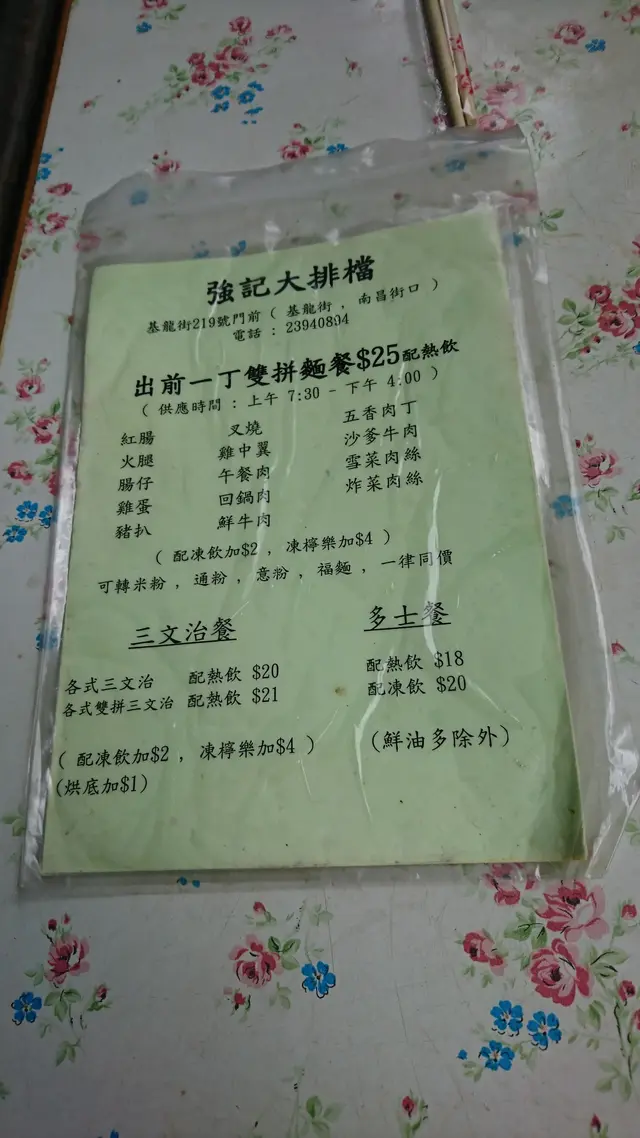 強記大排檔
基龍街219號門前 ( 基龍街 , 南昌街口 )
電話 : 23940894
出前一丁雙拼麵餐$25配熱飲
( 供應時間 : 上午 7:30 - 下午 4:00 )
紅腸 叉燒 五香肉丁
火腿 雞中翼 沙爹牛肉
腸仔 午餐肉 雪菜肉絲
雞蛋 回鍋肉 炸菜肉絲
豬扒 鮮牛肉
( 配凍飲加$2 , 凍檸樂加$4 )
可轉米粉 , 通粉 , 意粉 , 福麵 , 一律同價
三文治餐 多士餐
各式三文治 配熱飲 $20 配熱飲 $18
各式雙拼三文治 配熱飲 $21 配凍飲 $20
( 配凍飲加$2 , 凍檸樂加$4 ) (鮮油多除外)
(烘底加$1)